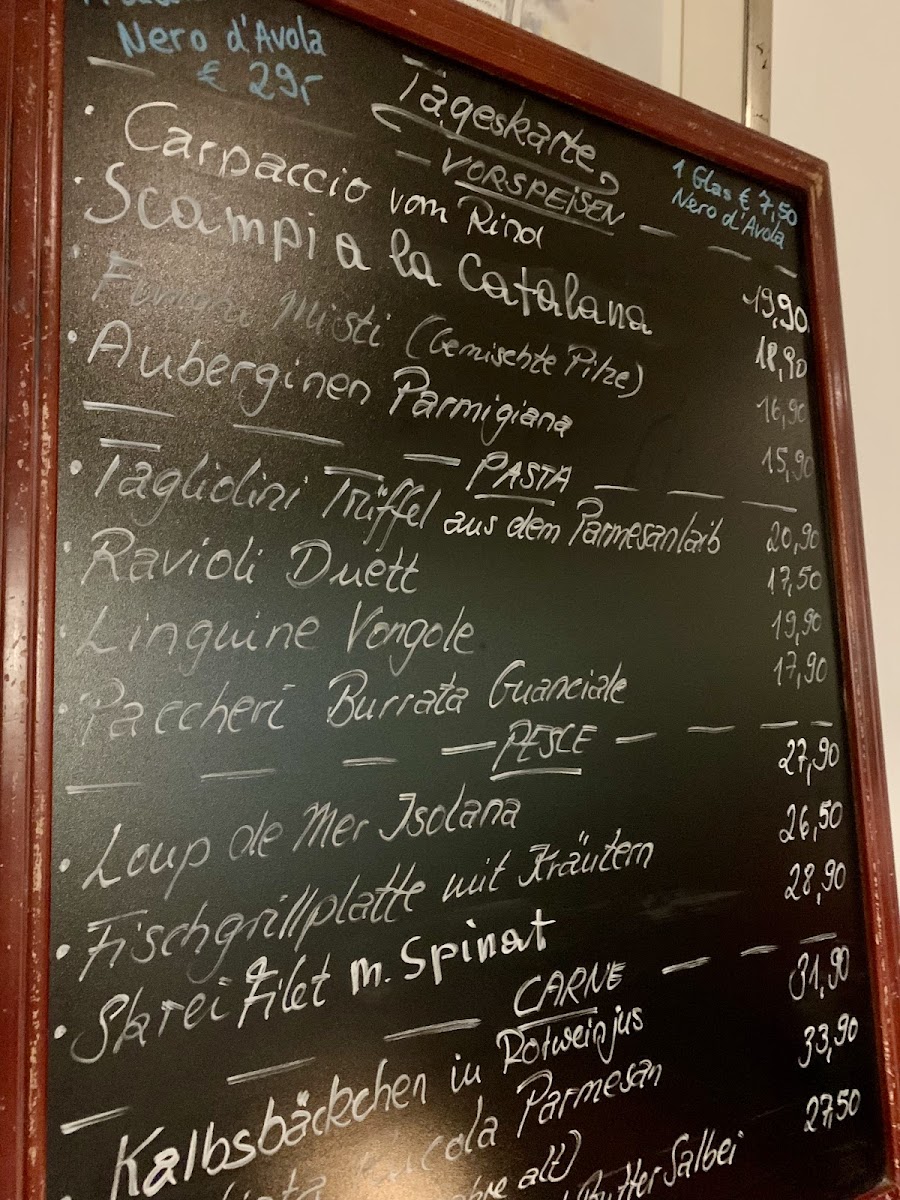 Nero d'Avola
€ 29,-
Tageskarte
1 Glas € 7,50
Nero d'Avola
- VORSPEISEN
· Carpaccio vom Rind 19,90
· Scampi a la Catalana 18,90
· Misti (Gemischte Pilze) 16,90
· Auberginen Parmigiana 15,90
PASTA
· Tagliolini Trüffel aus dem Parmesanlaib 20,90
· Ravioli Duett 17,50
· Linguine Vongole 19,90
· Paccheri Burrata Guanciale 17,90
PESCE
· Loup de Mer Isolana 27,90
· Fischgrillplatte mit Kräutern 26,50
· Skrei Filet m. Spinat 28,90
CARNE
Kalbsbäckchen in Rotweinjus 31,90
Parmesan 33,90
alt)
Butter Salbei 27,50